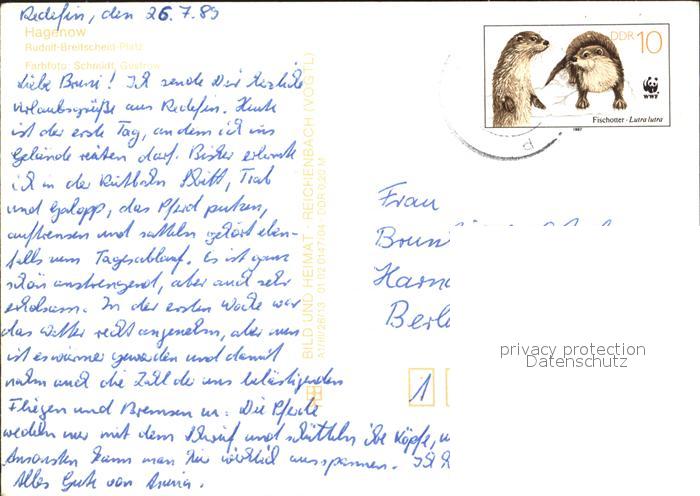 Redefin, den 26.7.89
Hagenow
Rudolf-Breitscheid-Platz
Farbfoto: Schmidt, Güstrow
Liebe Bruni! Ich sende Dir herzliche
Urlaubsgrüße aus Redefin. Heute
ist der erste Tag, an dem ich ins
Gelände reiten darf. Bisher erlernte
ich in der Reitbahn Schritt, Trab
und Galopp, das Pferd putzen,
auftrensen und satteln gehört eben-
falls zum Tagesablauf. Es ist ganz
schön anstrengend, aber auch sehr
erholsam. In der ersten Woche war
das Wetter recht angenehm, aber nun
ist es wärmer geworden und damit
nahm auch die Zahl der uns belästigenden
Fliegen und Bremsen zu. Die Pferde
wedeln nur mit dem Schweif und schütteln ihre Köpfe,
Ansonsten kann man hier wirklich ausspannen.
Alles Gute von
BILD UND HEIMAT REICHENBACH (VOGTL)
A1/80/26/13 01 02 0147/04 DDR 0,20 M
DDR 10
WWF
Fischotter · Lutra lutra
1987
P
Frau
Brun
Harn
Berl
1
privacy protection
Datenschutz